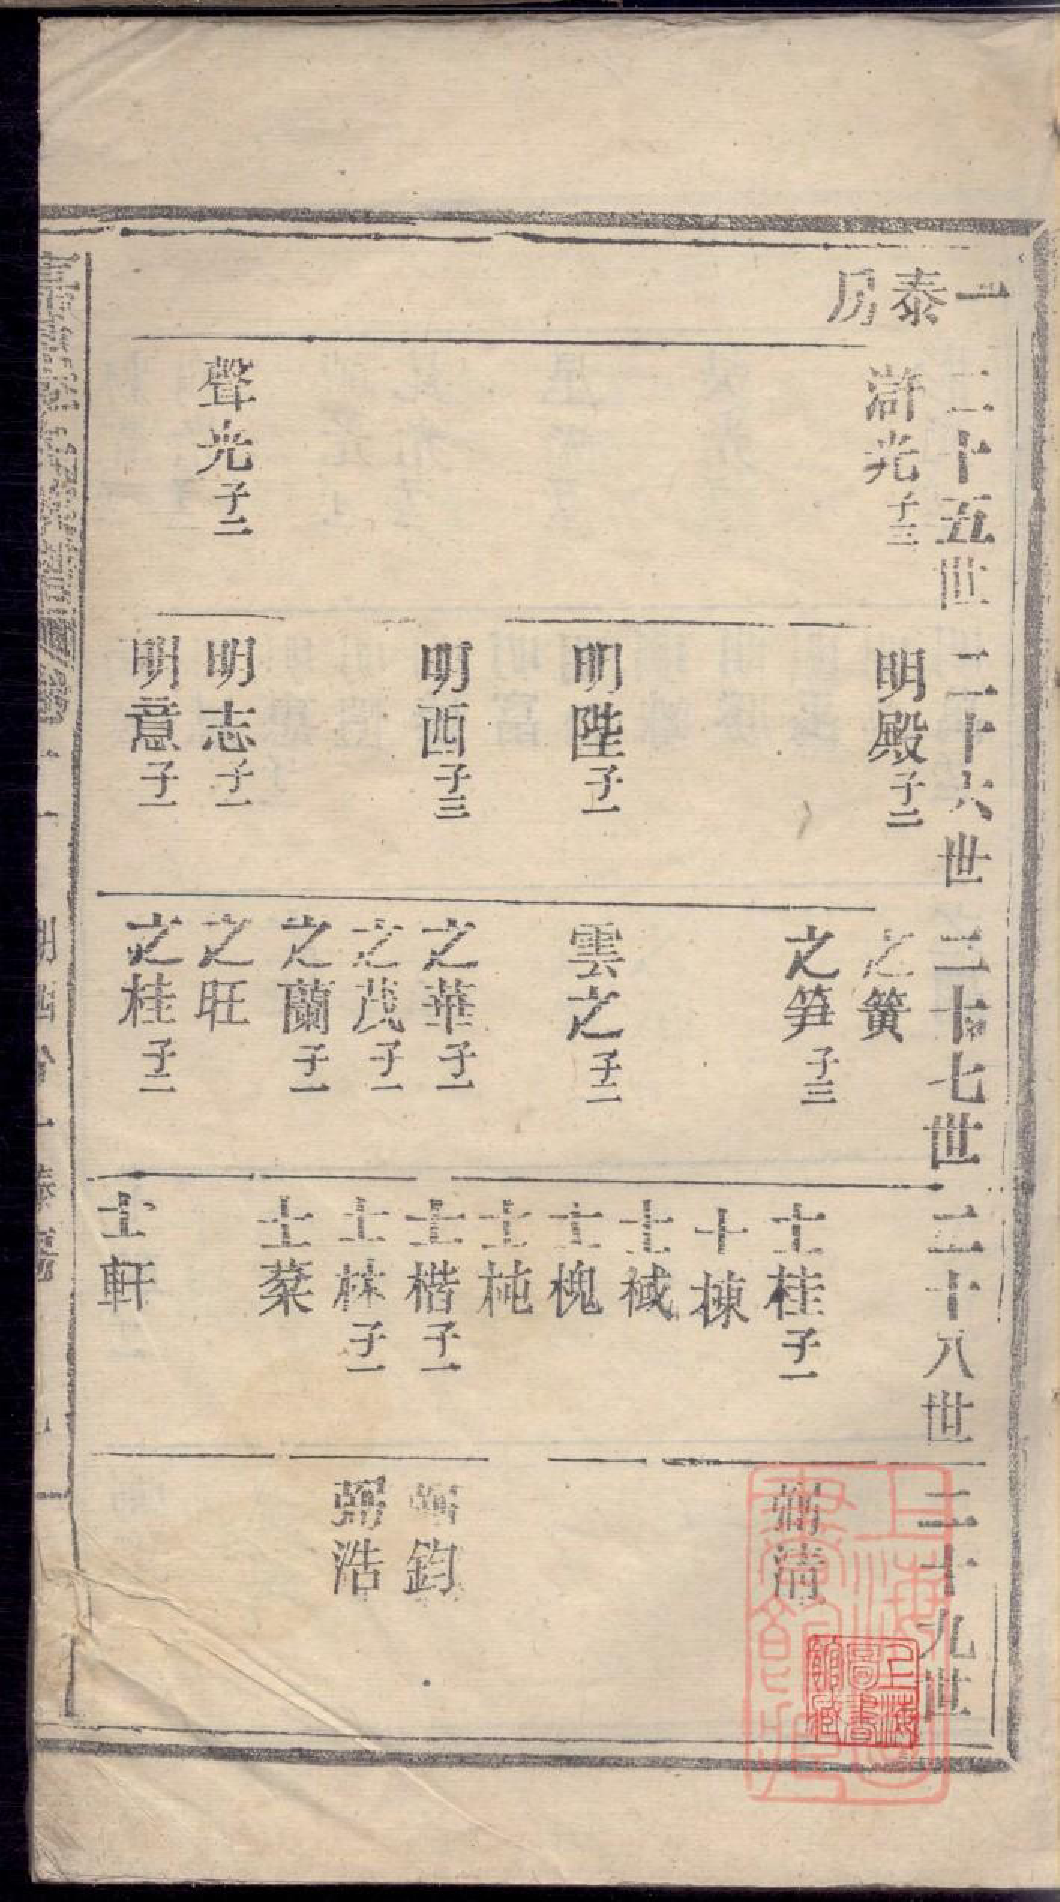 一泰房
二十五世
滸光子三
聲光子二
二十六世
明殿子二
明陛子一
明西子三
明志子一
明意子一
二十七世
之簧
之笋子三
雲之子二
之華子一
之茂子一
之蘭子一
之旺
之桂子二
二十八世
士桂子一
士棟
士棫
士槐
士杶
士楷子一
士林子一
士棻
士軒
二十九世
弼清
弼鈞
弼浩
上海圖書館藏